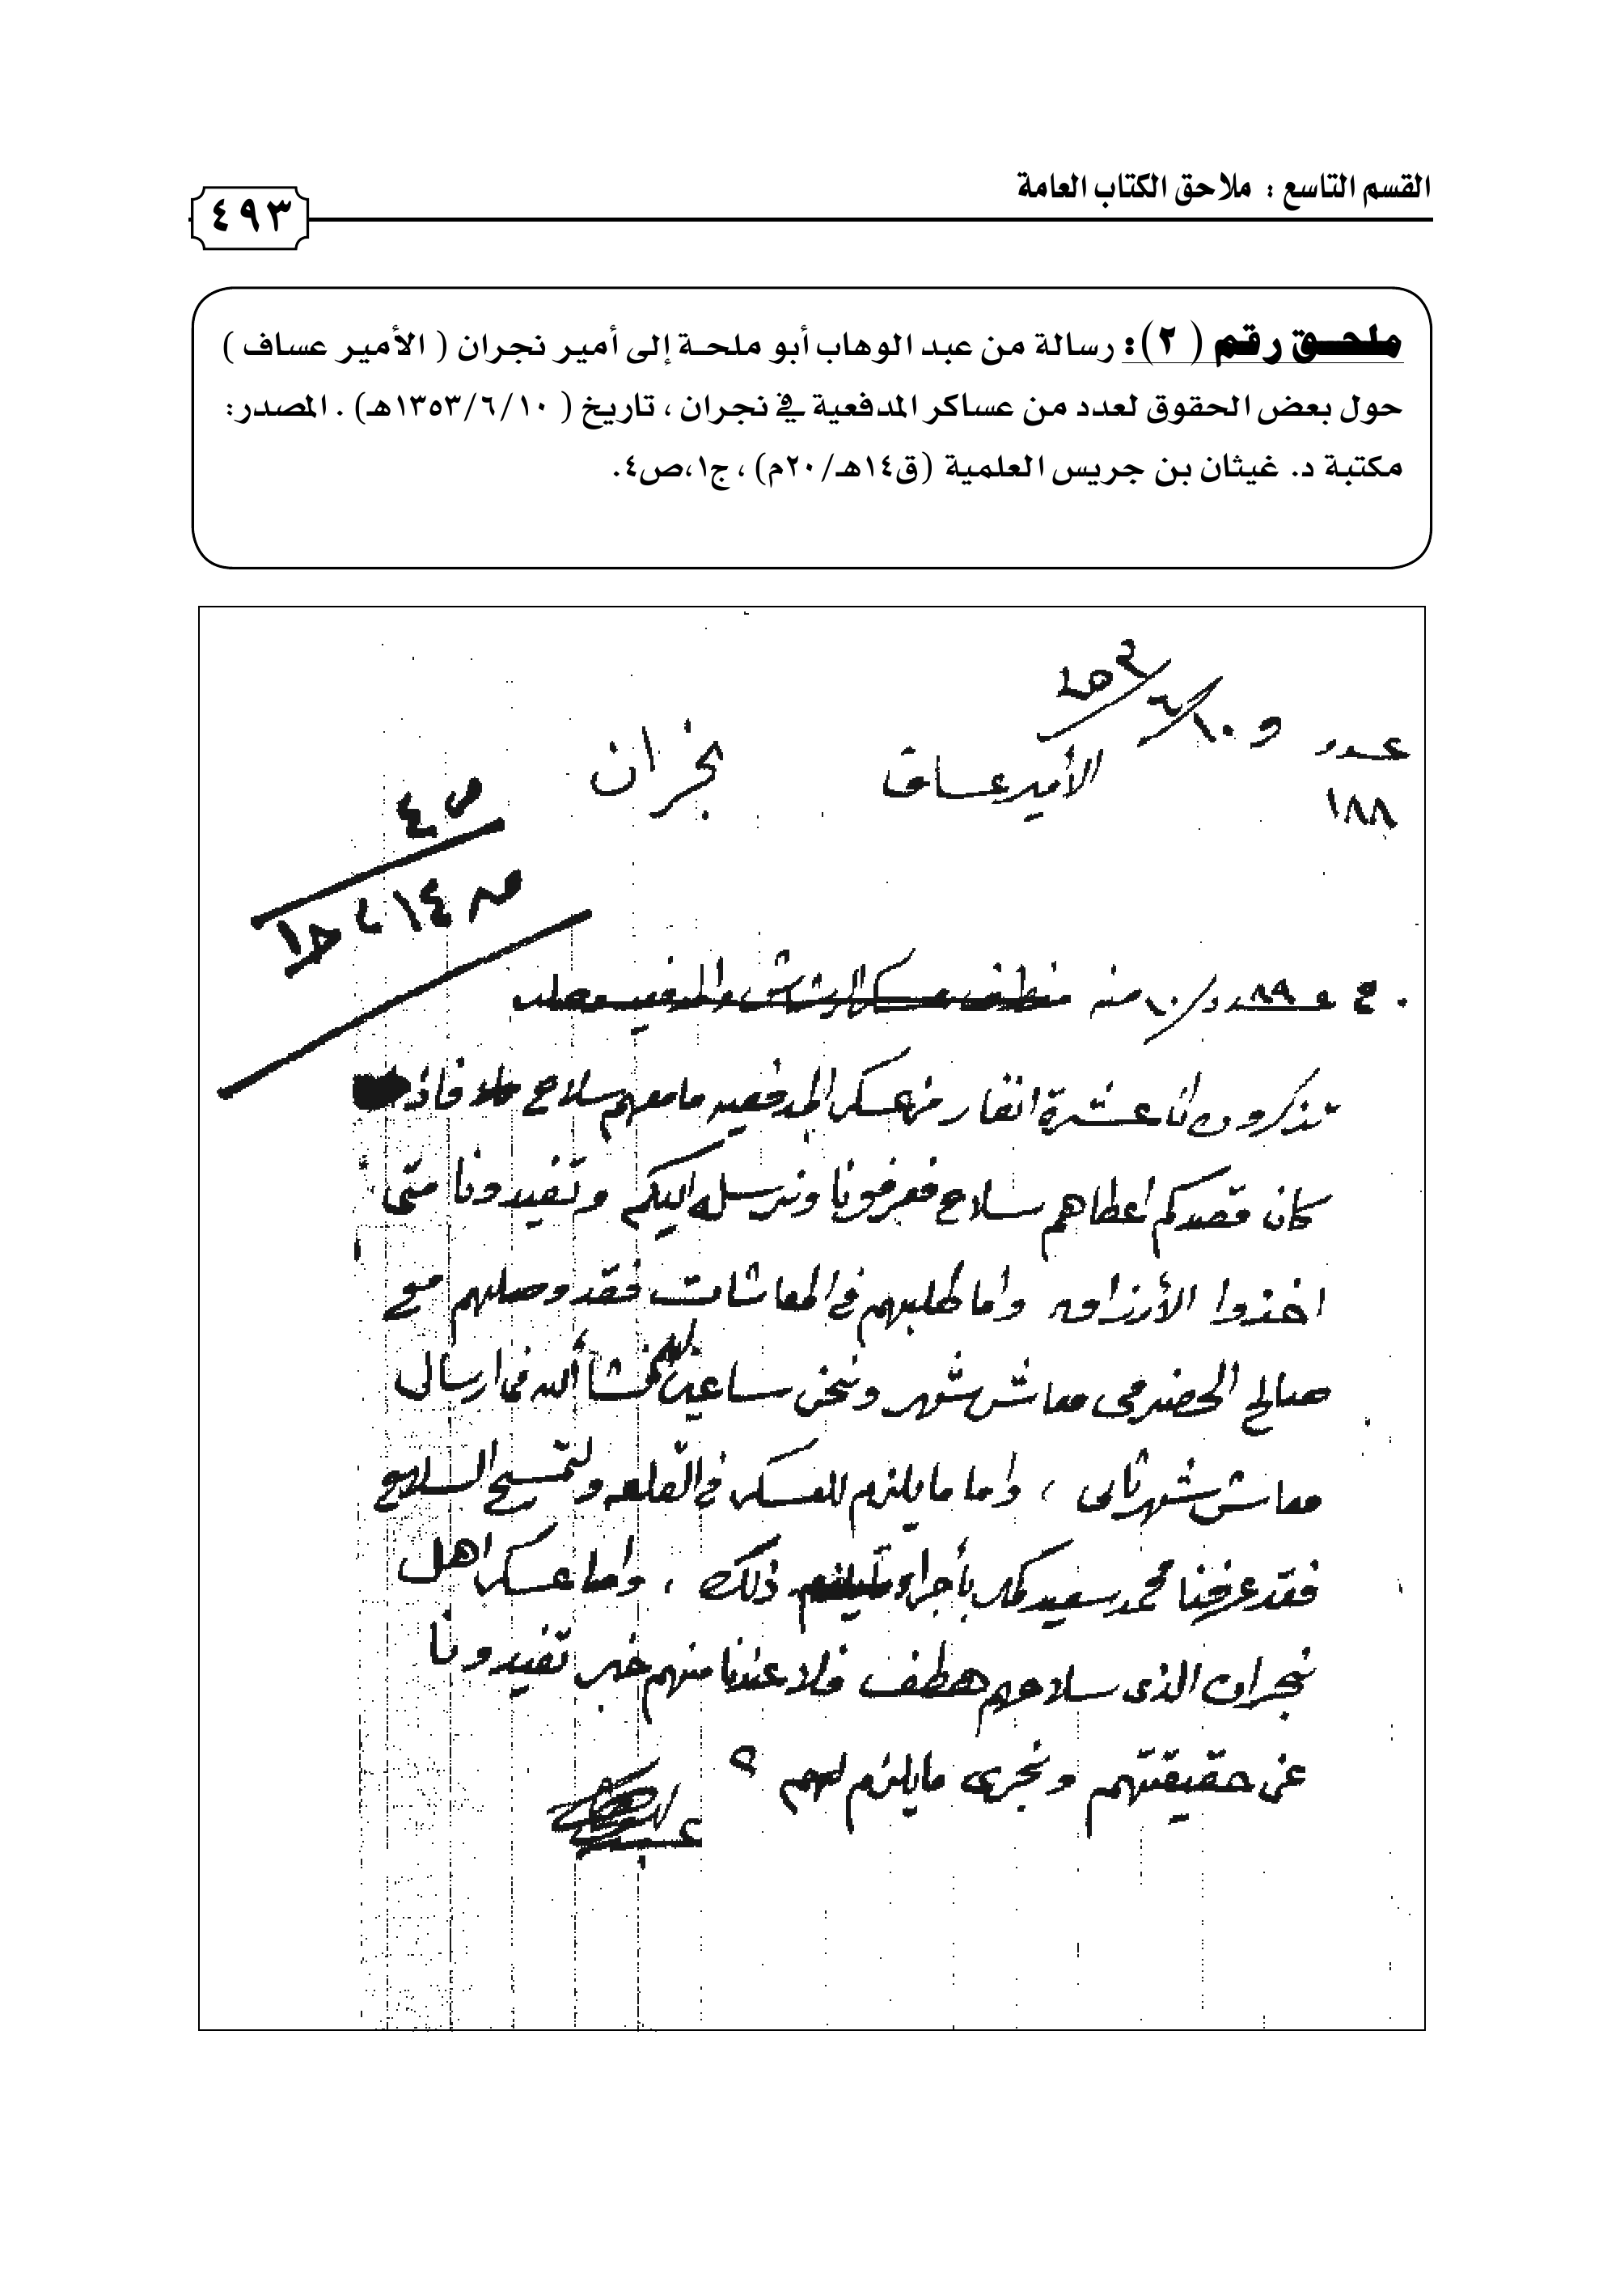 القسم التاسع : ملاحق الكتاب العامة
٤٩٣
ملحق رقم ( ٢ ): رسالة من عبد الوهاب أبو ملحة إلى أمير نجران ( الأمير عساف )
حول بعض الحقوق لعدد من عساكر المدفعية في نجران ، تاريخ ( ١٣٥٣/٦/١٠هـ) . المصدر:
مكتبة د. غيثان بن جريس العلمية (ق١٤هـ/٢٠م) ، ج١،ص٤.
عدد و ١٠/٦/
١٨٨
الأمير عساف نجران
ص ٤
١٤ ج١
ج ٨٩ منه
تذكرون ان عشرة انفار من عسكر المدفعيه مامعهم سلاح فاذا
كان قصدكم اعطاهم سلاح فعرفونا ونرسله اليكم وتفيدونا متى
اخذوا الأرزاق واما طلبهم في المعاشات فقد وصلهم مع
صالح الحضرمي معاش شهر ونحن ساعين انشأ الله في ارسال
معاش شهر ثاني ، واما مايلزم للعسكر في القلعه ولتمسيح السلاح
فقد عرفنا محمد سعيد بأجراء ذلك ، واما عسكر اهل
نجران الذي سلاحهم فلا عندنا منهم خبر تفيدونا
عن حقيقتهم ونجري مايلزم لهم